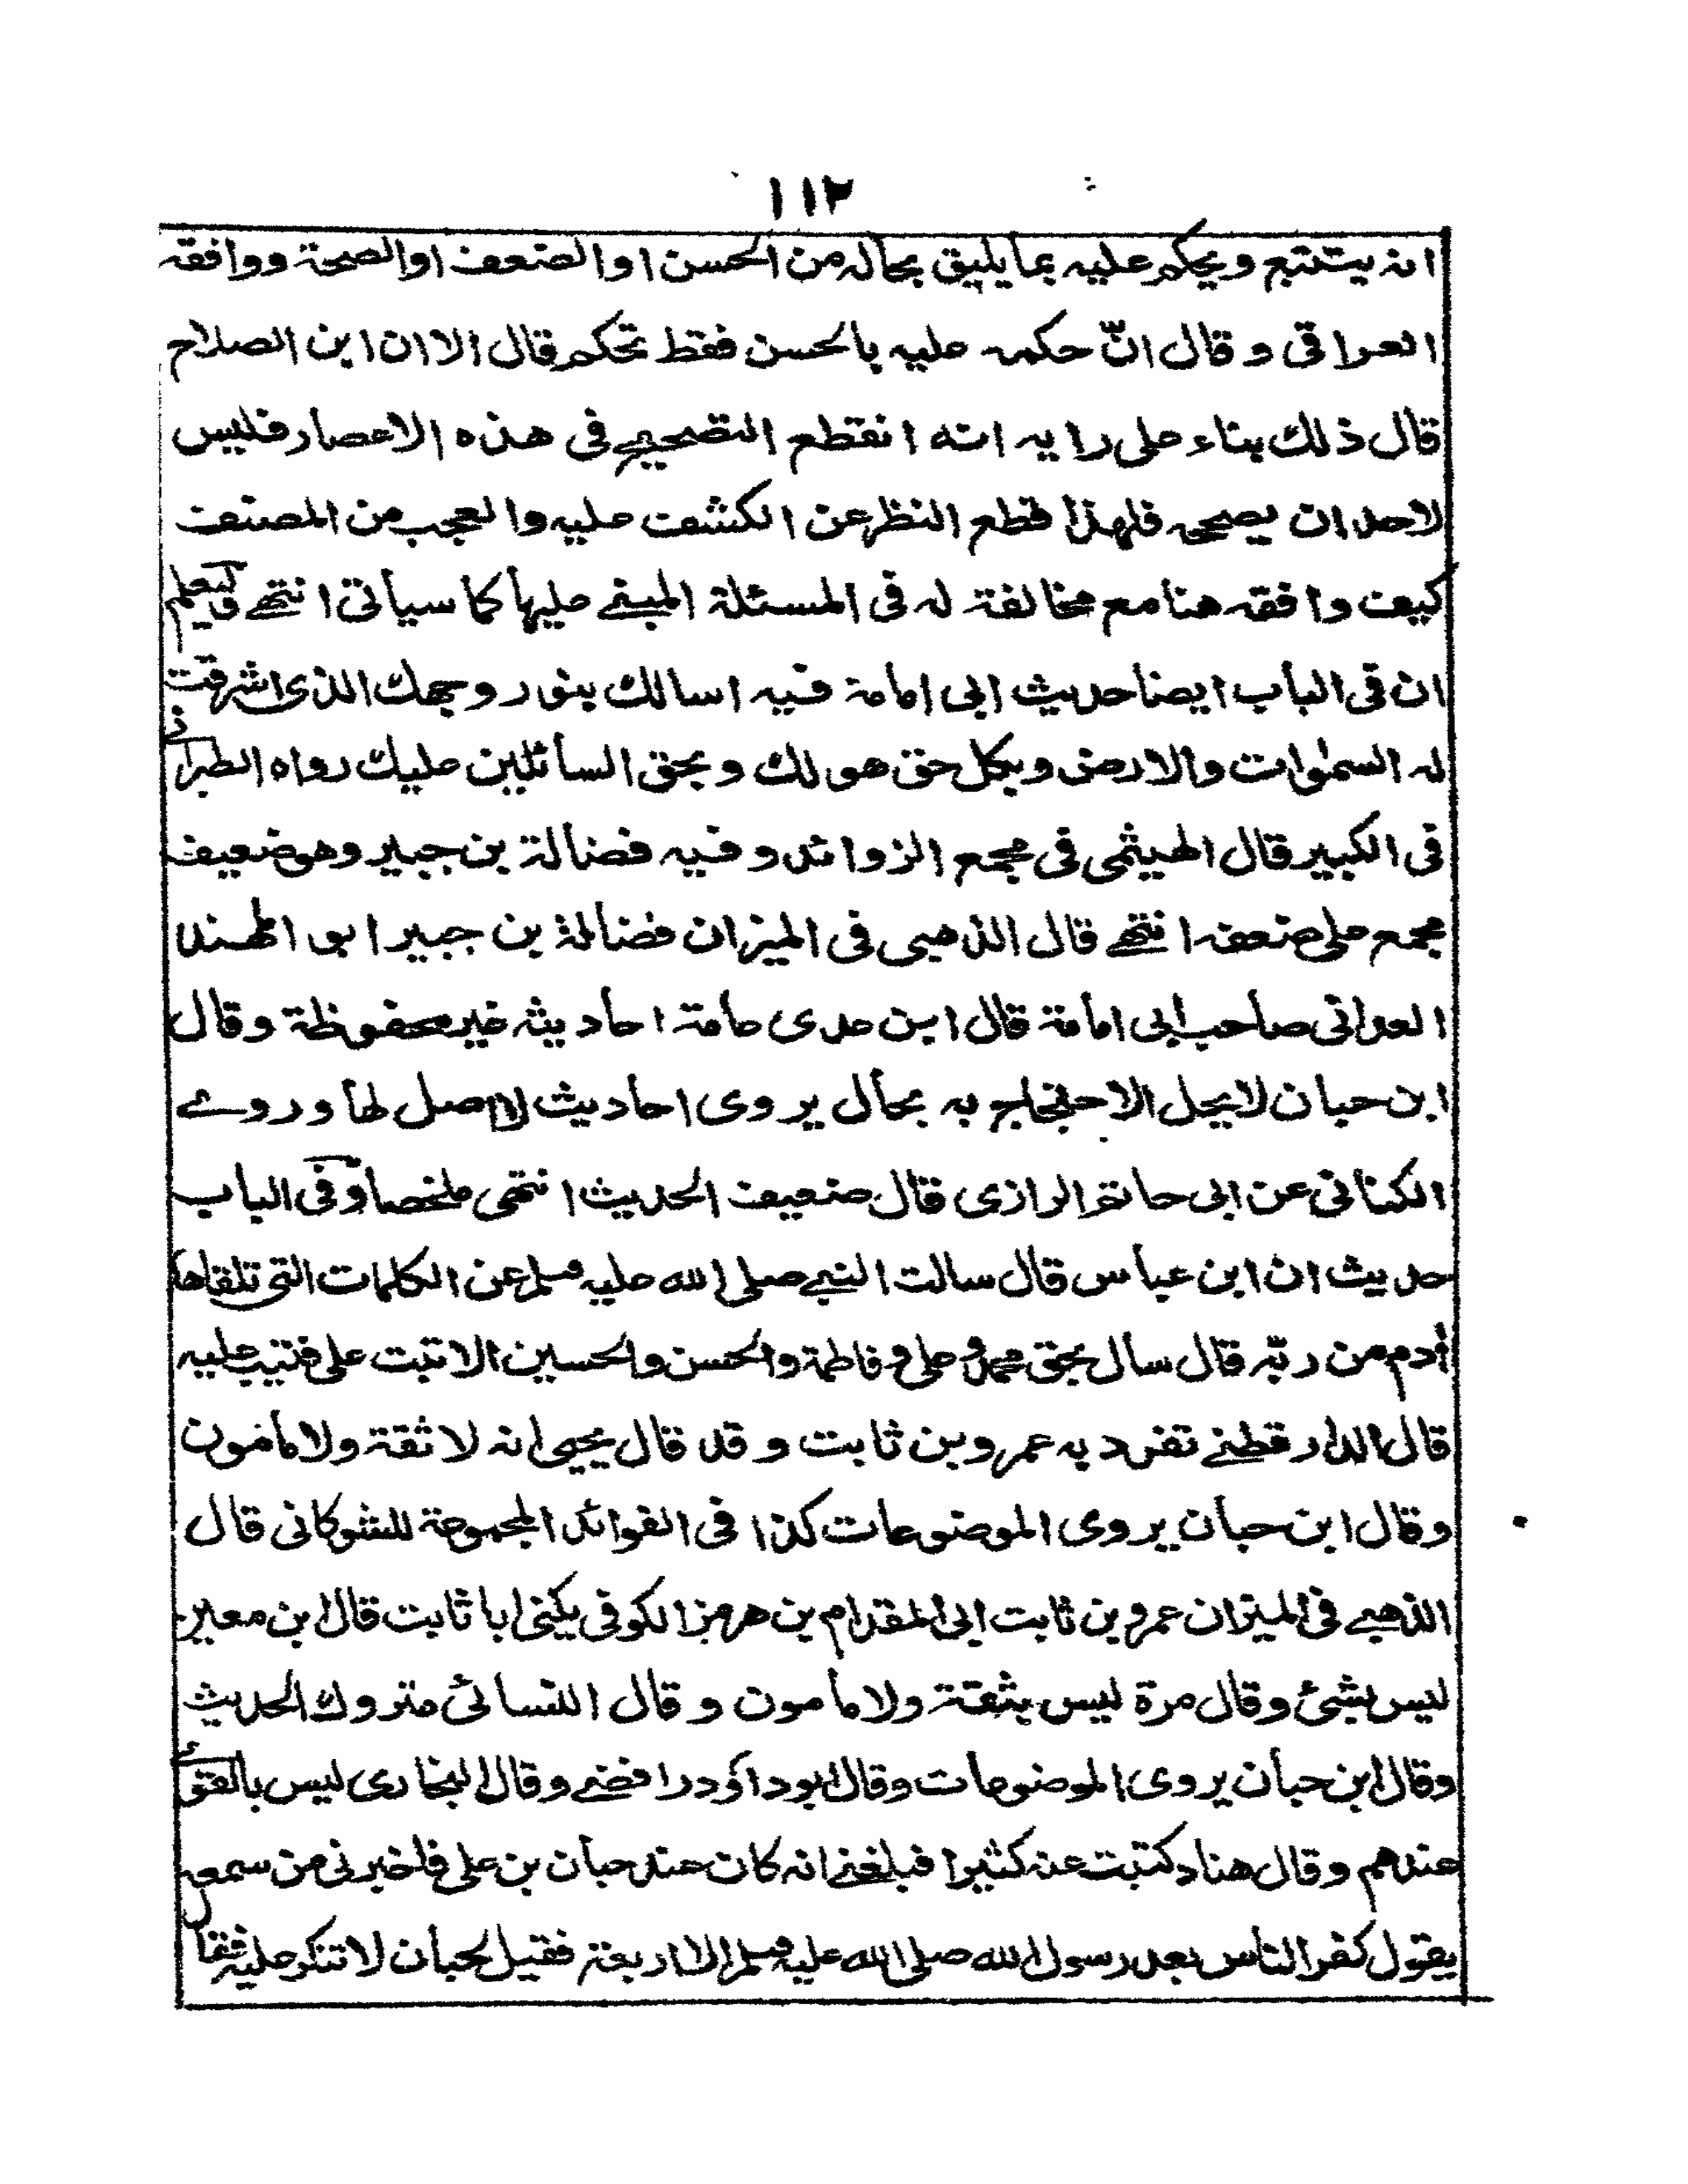 ١١٢
انه يتتبع ويحكم عليه بما يليق بحاله من الحسن او الضعف او الصحة ووافقه
العراقى وقال انّ حكمه عليه بالحسن فقط تحكم قال الا ان ابن الصلاح
قال ذلك بناء على رايه انه انقطع التصحيح فى هذه الاعصار فليس
لاحد ان يصححه فلهذا قطع النظر عن الكشف عليه والعجب من المصنف
كيف وافقه هنا مع مخالفة له فى المسئلة المبنے عليها كما سيأتى انتهے وليعلم
ان فى الباب ايضا حديث ابى امامة فيه اسالك بنور وجهك الذى اشرقت
له السمٰوات والارض وبكل حق هو لك وبحق السائلين عليك رواه الطبرانے
فى الكبير قال الهيثمى فى مجمع الزوائد وفيه فضالة بن جبير وهو ضعيف
مجمع على ضعفه انتهے قال الذهبى فى الميزان فضالة بن جبير ابو المهند
العدانى صاحب ابى امامة قال ابن عدى عامة احاديثه غير محفوظة وقال
ابن حبان لا يحل الاحتجاج به بحال يروى احاديث لا اصل لها وروے
الكنانى عن ابى حاتم الرازى قال ضعيف الحديث انتهى ملخصا وفى الباب
حديث ان ابن عباس قال سالت النبے صلى الله عليه وسلم عن الكلمات التى تلقاها
أدم من ربّه قال سأل بحق محمد وعلى وفاطمة والحسن والحسين الا تبت على فتيب عليه
قال الدارقطنے تفرد به عمرو بن ثابت وقد قال يحيى انه لا ثقة ولا مأمون
وقال ابن حبان يروى الموضوعات كذا فى الفوائد المجموعة للشوكانى قال
الذهبے فى الميزان عمرو بن ثابت ابى المقدام بن هرمز الكوفى يكنى ابا ثابت قال ابن معين
ليس بشئ وقال مرة ليس بثقة ولا مأمون وقال النسائى متروك الحديث
وقال ابن حبان يروى الموضوعات وقال ابو داؤد رافضے وقال البخارى ليس بالقوے
عندهم وقال هناد كتبت عنه كثيرا فبلغنے انه كان عند حبان بن على فاخبرنى من سمعه
يقول كفر الناس بعد رسول الله صلى الله عليه وسلم الا اربعة فقيل لحبان لا تنكر عليه فقال